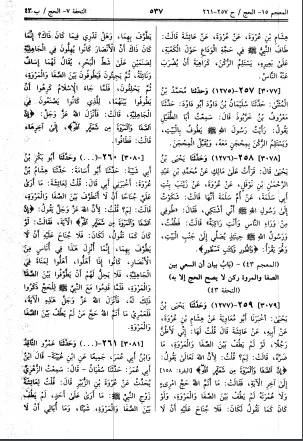 المعجم ١٥- الحج / ح ٢٥٧-٢٦١
٥٣٧
التحفة ٧- الحج / ب ٤٣
هِشَامِ بْنِ عُرْوَةَ، عَنْ عُرْوَةَ، عَنْ عَائِشَةَ قَالَتْ:
طَافَ النَّبِيُّ ﷺ فِي حَجَّةِ الْوَدَاعِ حَوْلَ الْكَعْبَةِ،
عَلَى بَعِيرِهِ، يَسْتَلِمُ الرُّكْنَ، كَرَاهِيَةَ أَنْ يُضْرَبَ
عَنْهُ النَّاسُ.
[٣٠٧٧] ٢٥٧-(١٢٧٥) وَحَدَّثَنَا مُحَمَّدُ بْنُ
الْمُثَنَّى: حَدَّثَنَا سُلَيْمَانُ بْنُ دَاوُدَ: حَدَّثَنَا
مَعْرُوفُ بْنُ خَرَّبُوذَ قَالَ: سَمِعْتُ أَبَا الطُّفَيْلِ
يَقُولُ: رَأَيْتُ رَسُولَ اللهِ ﷺ يَطُوفُ بِالْبَيْتِ،
وَيَسْتَلِمُ الرُّكْنَ بِمِحْجَنٍ مَعَهُ، وَيُقَبِّلُ الْمِحْجَنَ.
[٣٠٧٨] ٢٥٨-(١٢٧٦) حَدَّثَنَا يَحْيَى بْنُ
يَحْيَى قَالَ: قَرَأْتُ عَلَى مَالِكٍ عَنْ مُحَمَّدِ بْنِ عَبْدِ
الرَّحْمَنِ بْنِ نَوْفَلٍ، عَنْ عُرْوَةَ، عَنْ زَيْنَبَ بِنْتِ
أَبِي سَلَمَةَ، عَنْ أُمِّ سَلَمَةَ أَنَّهَا قَالَتْ: شَكَوْتُ
إِلَى رَسُولِ اللهِ ﷺ أَنِّي أَشْتَكِي، فَقَالَ: «طُوفِي
مِنْ وَرَاءِ النَّاسِ وَأَنْتِ رَاكِبَةٌ» قَالَتْ: فَطُفْتُ،
وَرَسُولُ اللهِ ﷺ حِينَئِذٍ يُصَلِّي إِلَى جَنْبِ الْبَيْتِ،
وَهُوَ يَقْرَأُ: ﴿وَالطُّورِ وَكِتَابٍ مَسْطُورٍ﴾.
(المعجم ٤٣) - (باب بيان أن السعي بين
الصفا والمروة ركن لا يصح الحج إلا به)
(التحفة ٤٣)
[٣٠٧٩] ٢٥٩-(١٢٧٧) حَدَّثَنَا يَحْيَى بْنُ
يَحْيَى: أَخْبَرَنَا أَبُو مُعَاوِيَةَ عَنْ هِشَامِ بْنِ عُرْوَةَ،
عَنْ أَبِيهِ، عَنْ عَائِشَةَ قَالَ: قُلْتُ لَهَا: إِنِّي لَأَظُنُّ
رَجُلًا، لَوْ لَمْ يَطُفْ بَيْنَ الصَّفَا وَالْمَرْوَةِ، مَا
ضَرَّهُ، قَالَتْ: لِمَ؟ قُلْتُ: لِأَنَّ اللهَ تَعَالَى يَقُولُ:
﴿إِنَّ الصَّفَا وَالْمَرْوَةَ مِنْ شَعَائِرِ اللهِ﴾ [البقرة: ١٥٨]
إِلَى آخِرِ الْآيَةِ، فَقَالَتْ: مَا أَتَمَّ اللهُ حَجَّ امْرِئٍ
وَلَا عُمْرَتَهُ لَمْ يَطُفْ بَيْنَ الصَّفَا وَالْمَرْوَةِ، وَلَوْ
كَانَ كَمَا تَقُولُ لَكَانَ: فَلَا جُنَاحَ عَلَيْهِ أَنْ لَا
يَطَّوَّفَ بِهِمَا، وَهَلْ تَدْرِي فِيمَا كَانَ ذَاكَ؟ إِنَّمَا
كَانَ ذَاكَ أَنَّ الْأَنْصَارَ كَانُوا يُهِلُّونَ فِي الْجَاهِلِيَّةِ
لِصَنَمَيْنِ عَلَى شَطِّ الْبَحْرِ، يُقَالُ لَهُمَا: إِسَافٌ
وَنَائِلَةُ، ثُمَّ يَجِيئُونَ فَيَطُوفُونَ بَيْنَ الصَّفَا وَالْمَرْوَةِ،
ثُمَّ يَحْلِقُونَ، فَلَمَّا جَاءَ الْإِسْلَامُ كَرِهُوا أَنْ
يَطُوفُوا بَيْنَهُمَا، لِلَّذِي كَانُوا يَصْنَعُونَ فِي
الْجَاهِلِيَّةِ، قَالَتْ: فَأَنْزَلَ اللهُ عَزَّ وَجَلَّ: ﴿إِنَّ
الصَّفَا وَالْمَرْوَةَ مِنْ شَعَائِرِ اللهِ﴾، إِلَى آخِرِهَا،
قَالَتْ: فَطَافُوا.
[٣٠٨٠] ٢٦٠-(...) وَحَدَّثَنَا أَبُو بَكْرِ بْنُ
أَبِي شَيْبَةَ: حَدَّثَنَا أَبُو أُسَامَةَ: حَدَّثَنَا هِشَامُ بْنُ
عُرْوَةَ: أَخْبَرَنِي أَبِي قَالَ: قُلْتُ لِعَائِشَةَ: مَا أَرَى
عَلَيَّ جُنَاحًا أَنْ لَا أَتَطَوَّفَ بَيْنَ الصَّفَا وَالْمَرْوَةِ،
قَالَتْ: لِمَ؟ قُلْتُ: لِأَنَّ اللهَ عَزَّ وَجَلَّ يَقُولُ: ﴿إِنَّ
الصَّفَا وَالْمَرْوَةَ مِنْ شَعَائِرِ اللهِ﴾ الْآيَةَ، فَقَالَتْ: لَوْ
كَانَ كَمَا تَقُولُ، لَكَانَ: فَلَا جُنَاحَ عَلَيْهِ أَنْ لَا
يَطَّوَّفَ بِهِمَا، إِنَّمَا أُنْزِلَ هَذَا فِي أُنَاسٍ مِنَ
الْأَنْصَارِ، كَانُوا إِذَا أَهَلُّوا، أَهَلُّوا لِمَنَاةَ فِي
الْجَاهِلِيَّةِ، فَلَا يَحِلُّ لَهُمْ أَنْ يَطَّوَّفُوا بَيْنَ الصَّفَا
وَالْمَرْوَةِ، فَلَمَّا قَدِمُوا مَعَ النَّبِيِّ ﷺ لِلْحَجِّ ذَكَرُوا
ذَلِكَ لَهُ، فَأَنْزَلَ اللهُ عَزَّ وَجَلَّ هَذِهِ الْآيَةَ،
فَلَعَمْرِي مَا أَتَمَّ اللهُ حَجَّ مَنْ لَمْ يَطُفْ بَيْنَ الصَّفَا
وَالْمَرْوَةِ.
[٣٠٨١] ٢٦١-(...) وَحَدَّثَنَا عَمْرٌو النَّاقِدُ
وَابْنُ أَبِي عُمَرَ، جَمِيعًا عَنِ ابْنِ عُيَيْنَةَ- قَالَ ابْنُ
أَبِي عُمَرَ: حَدَّثَنَا سُفْيَانُ - قَالَ: سَمِعْتُ الزُّهْرِيَّ
يُحَدِّثُ عَنْ عُرْوَةَ بْنِ الزُّبَيْرِ قَالَ: قُلْتُ لِعَائِشَةَ
زَوْجِ النَّبِيِّ ﷺ: مَا أَرَى عَلَى أَحَدٍ، لَمْ يَطُفْ
بَيْنَ الصَّفَا وَالْمَرْوَةِ، شَيْئًا، وَمَا أُبَالِي أَنْ لَا